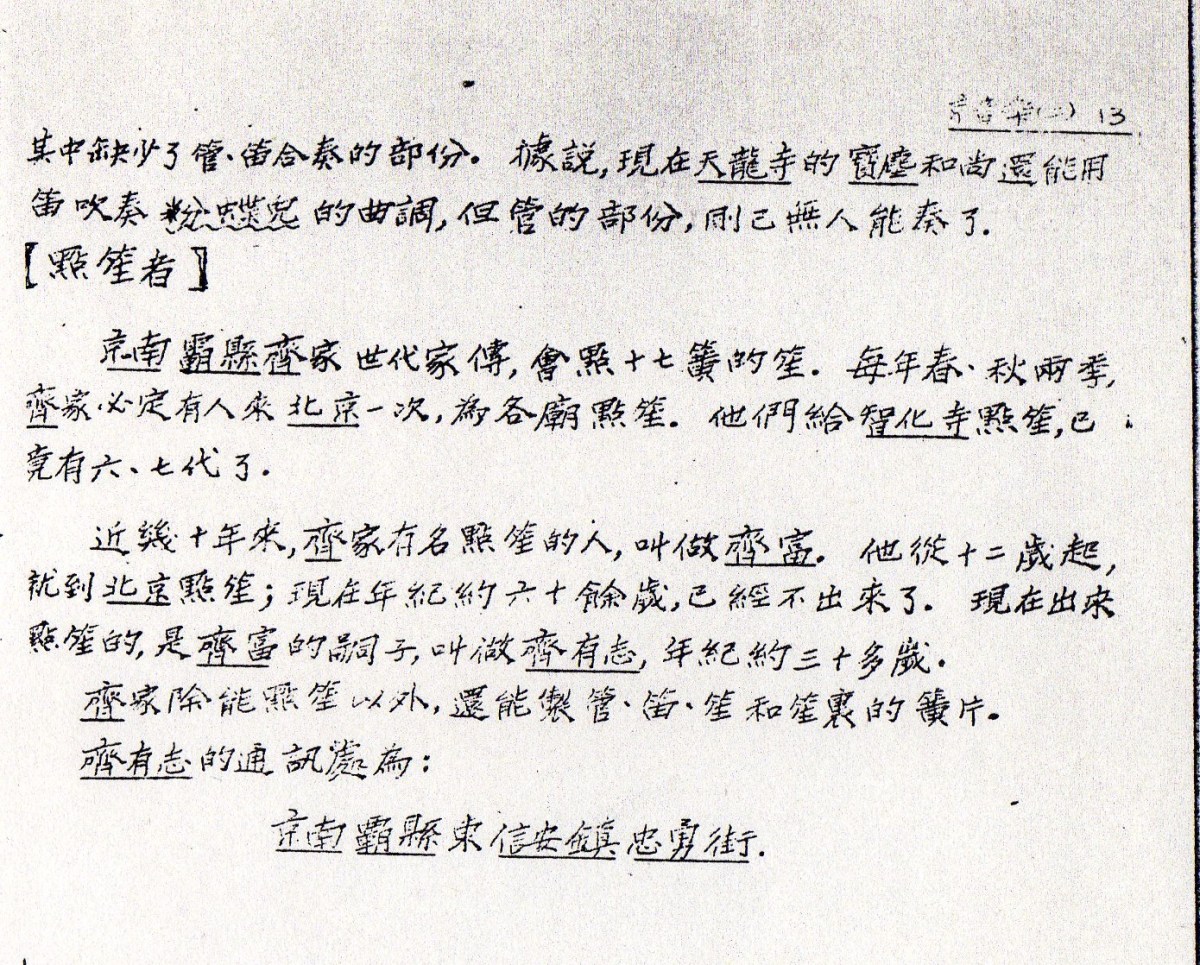 13
其中缺少了管、笛合奏的部份。據説,現在天龍寺的寶塵和尚還能用
笛吹奏粉蝶兒的曲調,但管的部份,則已無人能奏了.
【點笙者】
京南霸縣齊家世代家傳,會點十七簧的笙.每年春、秋兩季,
齊家必定有人來北京一次,為各廟點笙.他們給智化寺點笙,已
竟有六、七代了.
近幾十年來,齊家有名點笙的人,叫做齊富.他從十二歲起,
就到北京點笙;現在年紀約六十餘歲,已經不出來了.現在出來
點笙的,是齊富的嗣子,叫做齊有志,年紀約三十多歲.
齊家除能點笙以外,還能製管、笛、笙和笙裏的簧片。
齊有志的通訊處為:
京南霸縣東信安鎮忠勇街.